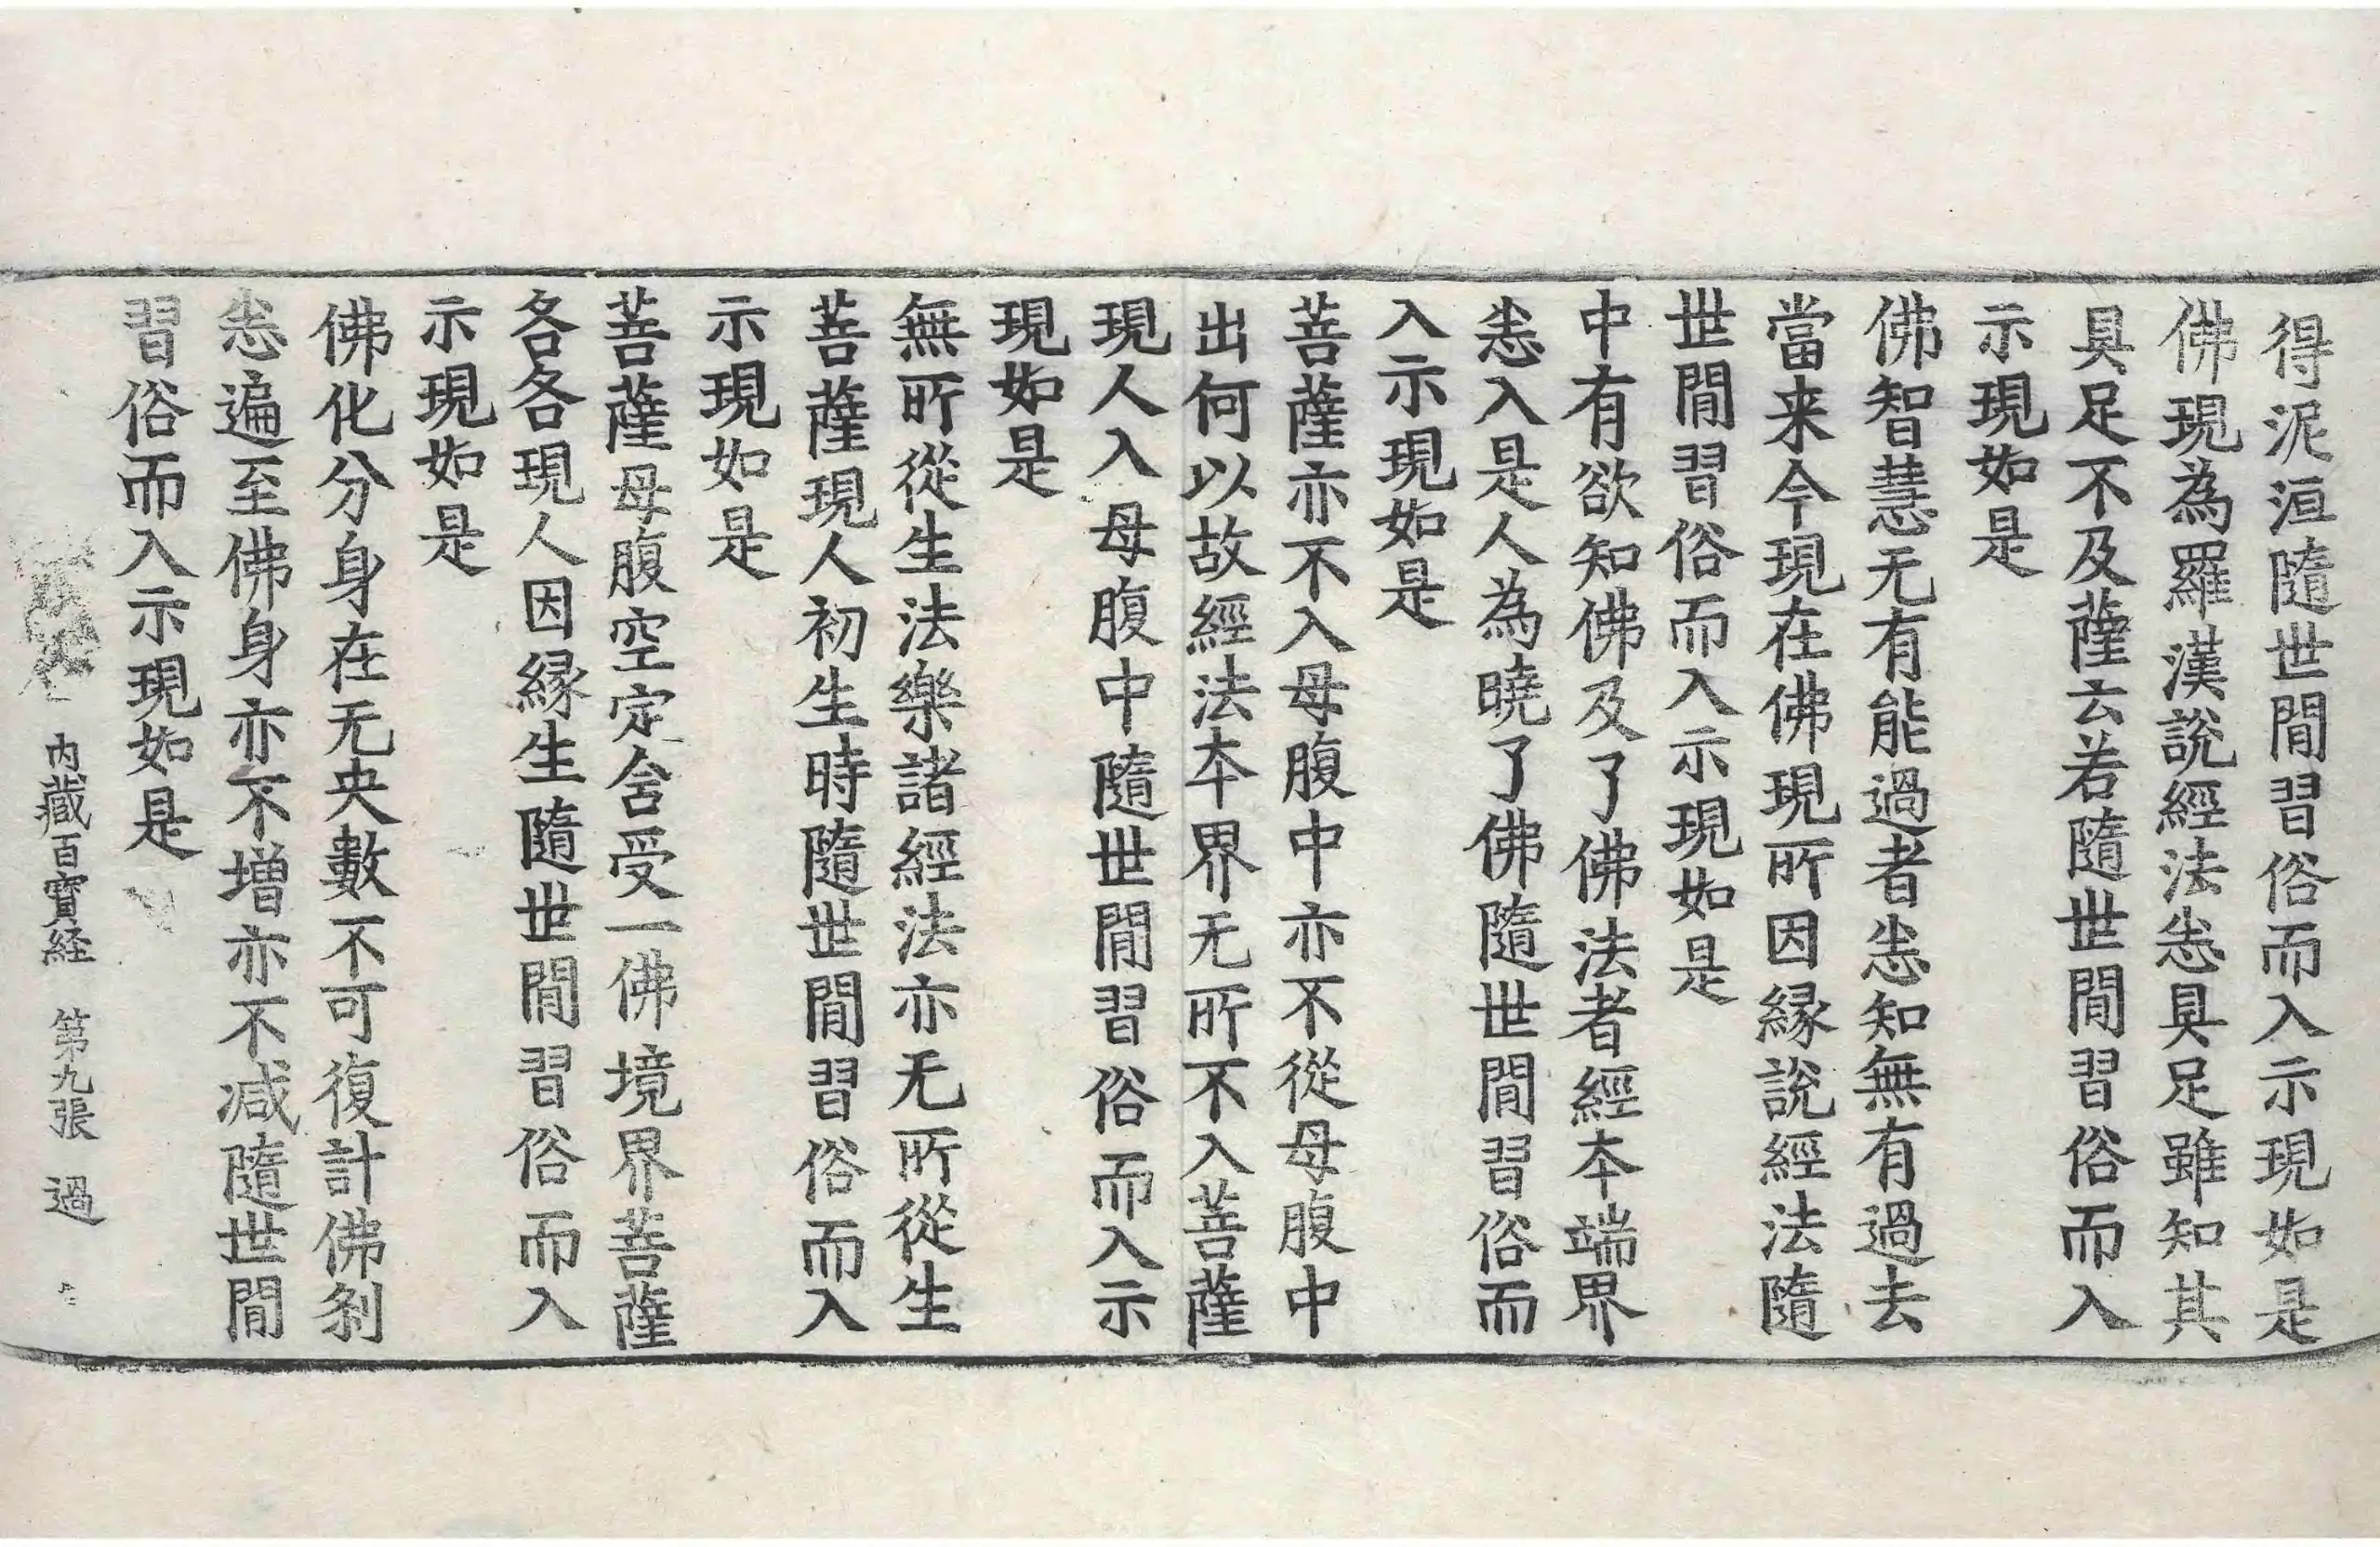 得泥洹隨世間習俗而入示現如是
佛現為羅漢說經法悉具足雖知其
具足不及薩云若隨世間習俗而入
示現如是
佛智慧无有能過者悉知無有過去
當来今現在佛現所因緣說經法隨
世間習俗而入示現如是
中有欲知佛及了佛法者經本端界
悉入是人為曉了佛隨世間習俗而
入示現如是
菩薩亦不入母腹中亦不從母腹中
出何以故經法本界无所不入菩薩
現人入母腹中隨世間習俗而入示
現如是
無所從生法樂諸經法亦无所從生
菩薩現人初生時隨世間習俗而入
示現如是
菩薩母腹空定舍受一佛境界菩薩
各各現人因緣生隨世間習俗而入
示現如是
佛化分身在无央數不可復計佛剎
悉遍至佛身亦不增亦不减隨世間
習俗而入示現如是
內藏百寶経 第九張 過